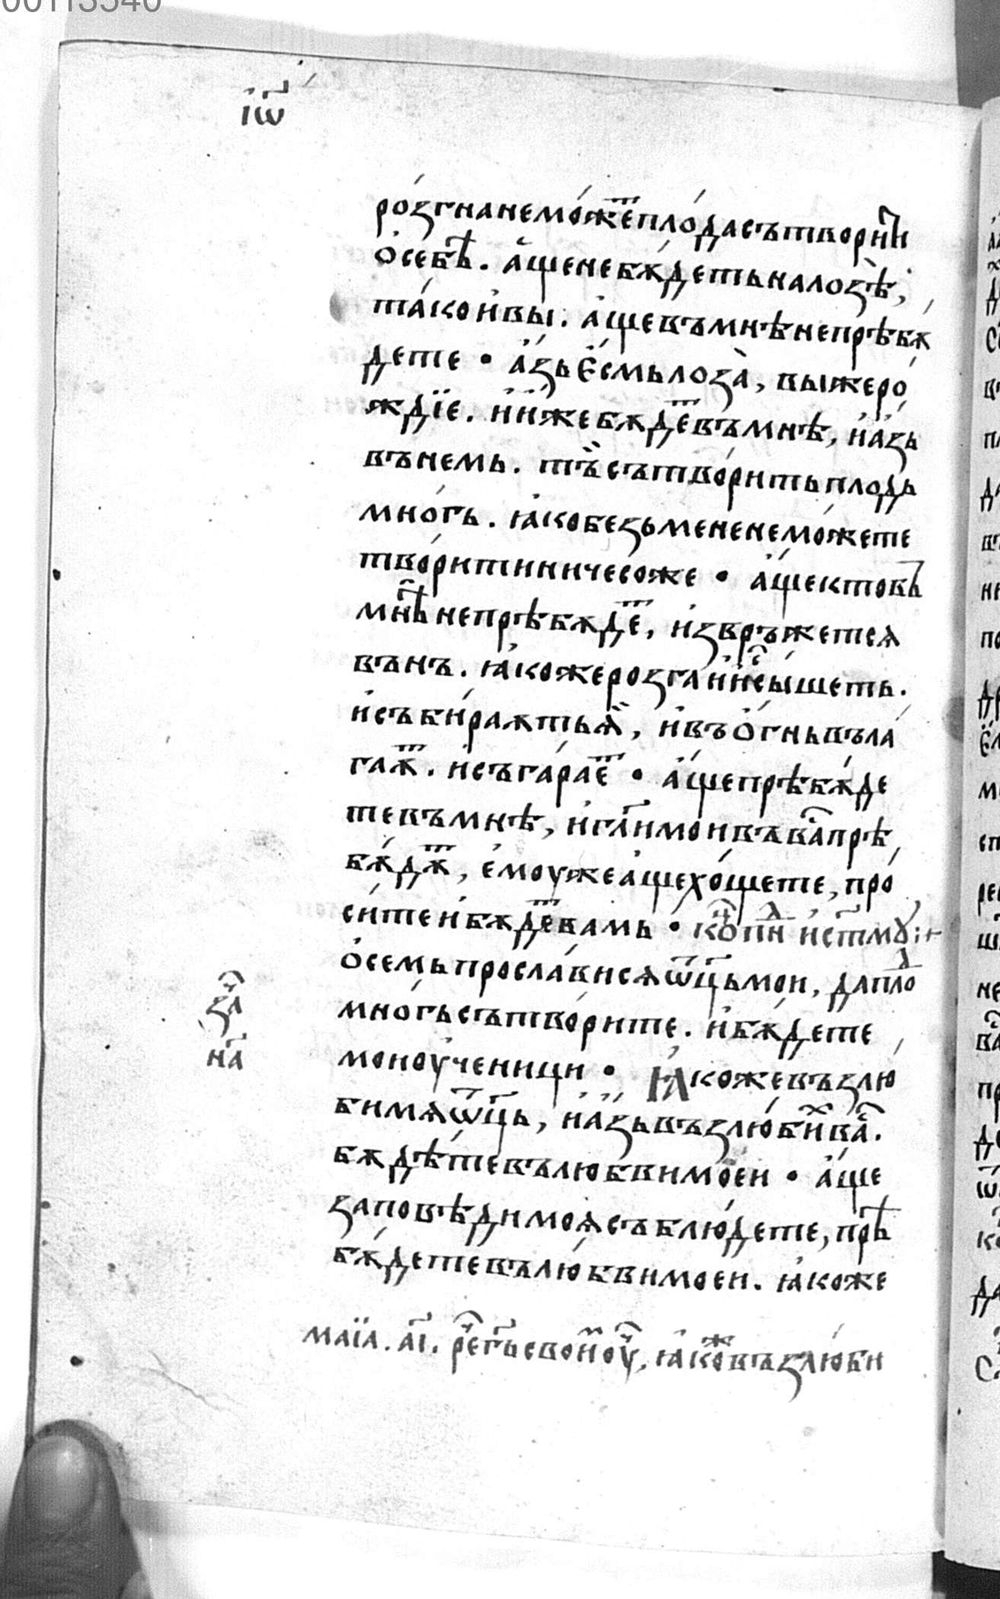 00113540
і҆ѡ҃
ро́згнанемо́жеⷮпло́дасътвориⷮи
ѻ҆себѣ̀. а҆́щенебѫ́детьналозѣ̀,
та́коивы. а҆́щевъмнѣнепрѣбѫ
дете • а҆́зьє҆́смьлоза̀, выжеро́
ждїе. и҆и҆́жебѫ́деⷮвъмнѣ, иа҆́зь
вънемь. тъ̀сътвори́тьплодь
мно́гь. ꙗ҆́кобезьмененемо́жете
твори́тиничесоже • а҆́щектовь
мнѣ̀непрѣбѫ́деⷮ, и҆звръ́жетсѧ
вънъ. ꙗ҆́кожерозгаии҆́сⷯышеть.
и҆събира́ѫтьѧ̀, и҆въѻ҆гньвъла́
гаѫⷮ. и҆съгараеⷮ • а҆́щепрѣбѫ́де
тевъмнѣ, и҆гл҃имоивъваⷭпрѣ
бѫ́дѫⷮ, е҆моужеа҆́щехо́щете, про
си́теи҆бѫ́деⷮвамь • коⷩ҇ пⷧнⷣ и҆стⷨмꙋ:+
ѻ҆семьпросла́висѧѡ҃ц҃ьмои, даплоⷣ
мно́гьсътвори́те. и҆бѫ́дете
моиоу҆ченици • Ꙗ҆кожевъзлю́
бимѧѡ҃ц҃ь, иа҆́зьвъзлюбиⷯваⷭ.
бѫдѣ́тевълюбвимоеи • а҆́ще
за́повѣдимоѧсъблюде́те, прѣ
бѫ́детевълюбвимоеи. ꙗ҆коже
заⷱ
на҃
маїа. а҃і. реⷱг҃ьсвоиⷨоуⷱ, ꙗ҆коⷤвъзлю́би